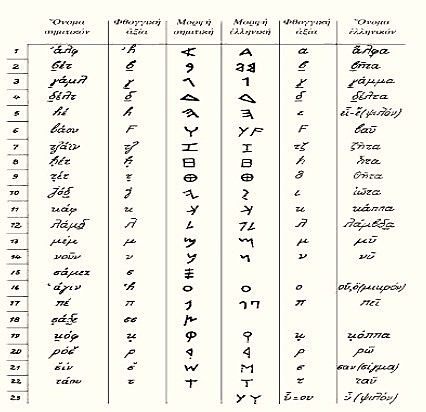 Ὄνομα σηματικόν Φθογγική ἀξία Μορφή σηματική Μορφή ἑλληνική Φθογγική ἀξία Ὄνομα ἑλληνικόν
1 ἀλφ 𐤀 Α α ἄλφα
2 βέτ β β βῆτα
3 γάμλ γ 1 γ γάμμα
4 δέλτ δ Δ Δ δ δέλτα
5 hέ h ε εἶ-ἔ(ψιλόν)
6 βάου F Y YF F βαῦ
7 τζάιν τζ I I τζ ζῆτα
8 ḥέτ ḥ B B h ἦτα
9 τέτ τ ⊕ ⊕ θ θῆτα
10 ι ἰῶτα
11 κάφ κ κ κάππα
12 λάμδ λ λ λάμβδα
13 μέμ μ μ μῦ
14 νοῦν ν ν νῦ
15 σάμεχ σ
16 ἁγιν O O ο οὖ,ὀ(μικρόν)
17 πέ π π πεῖ
18 σάδε σσ
19 κόφ κ Φ κ κόππα
20 ρόσ ρ ρ ρῶ
21 σίν σ W M σ σαν(σίγμα)
22 τάου τ T T τ ταῦ
23 YY ὖ=ου ὖ(ψιλόν)